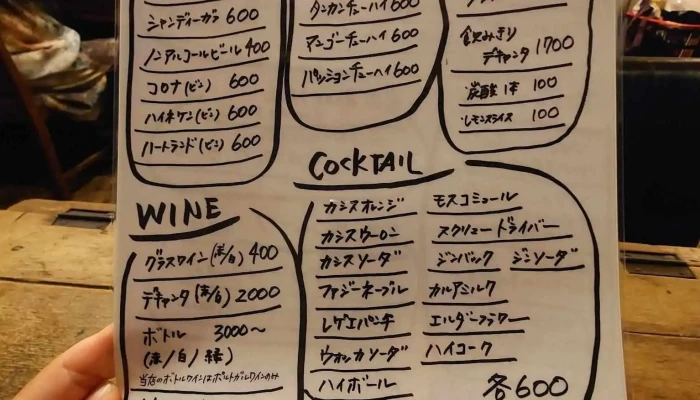 シャンディーガフ 600
ノンアルコールビール 400
コロナ(ビン) 600
ハイネケン(ビン) 600
ハートランド(ビン) 600
タンカンチューハイ 600
マンゴーチューハイ 600
パッションチューハイ 600
飲みきり
デキャンタ 1700
炭酸 1本 100
レモンスライス 100
WINE
グラスワイン(赤/白) 400
デキャンタ(赤/白) 2000
ボトル 3000〜
(赤/白/緑)
当店のボトルワインはポルトガルワインのみ
COCKTAIL
カシスオレンジ
カシスウーロン
カシスソーダ
ファジーネーブル
レゲエパンチ
ウォッカソーダ
ハイボール
モスコミュール
スクリュードライバー
ジンバック ジンソーダ
カルアミルク
エルダーフラワー
ハイコーク
各600